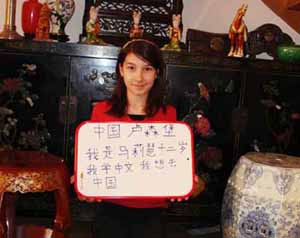 中国 卢森堡
我是马莉慧十二岁
我学中文 我想去
中国